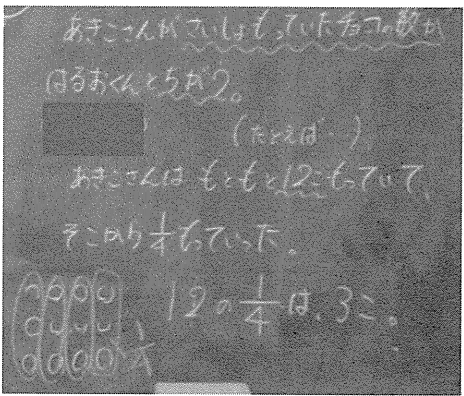 あきこさんがさいしょもっていたチョコの数が
はるおくんとちがう。
(たとえば…)
あきこさんはもともと12こもっていて、
そこから1/4もっていった。
12の1/4は、3こ。
1/4